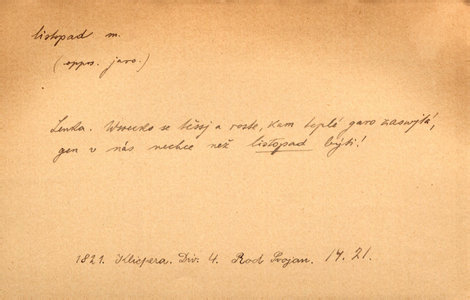 listopad m.
(oppos. jaro.)
Lenka. Wssecko se těssj a roste, kam teplé garo zaswjtá,
gen v nás nechce než listopad býti!
1821. Klicpera. Div. 4. Rod Svojan. 14. 21.